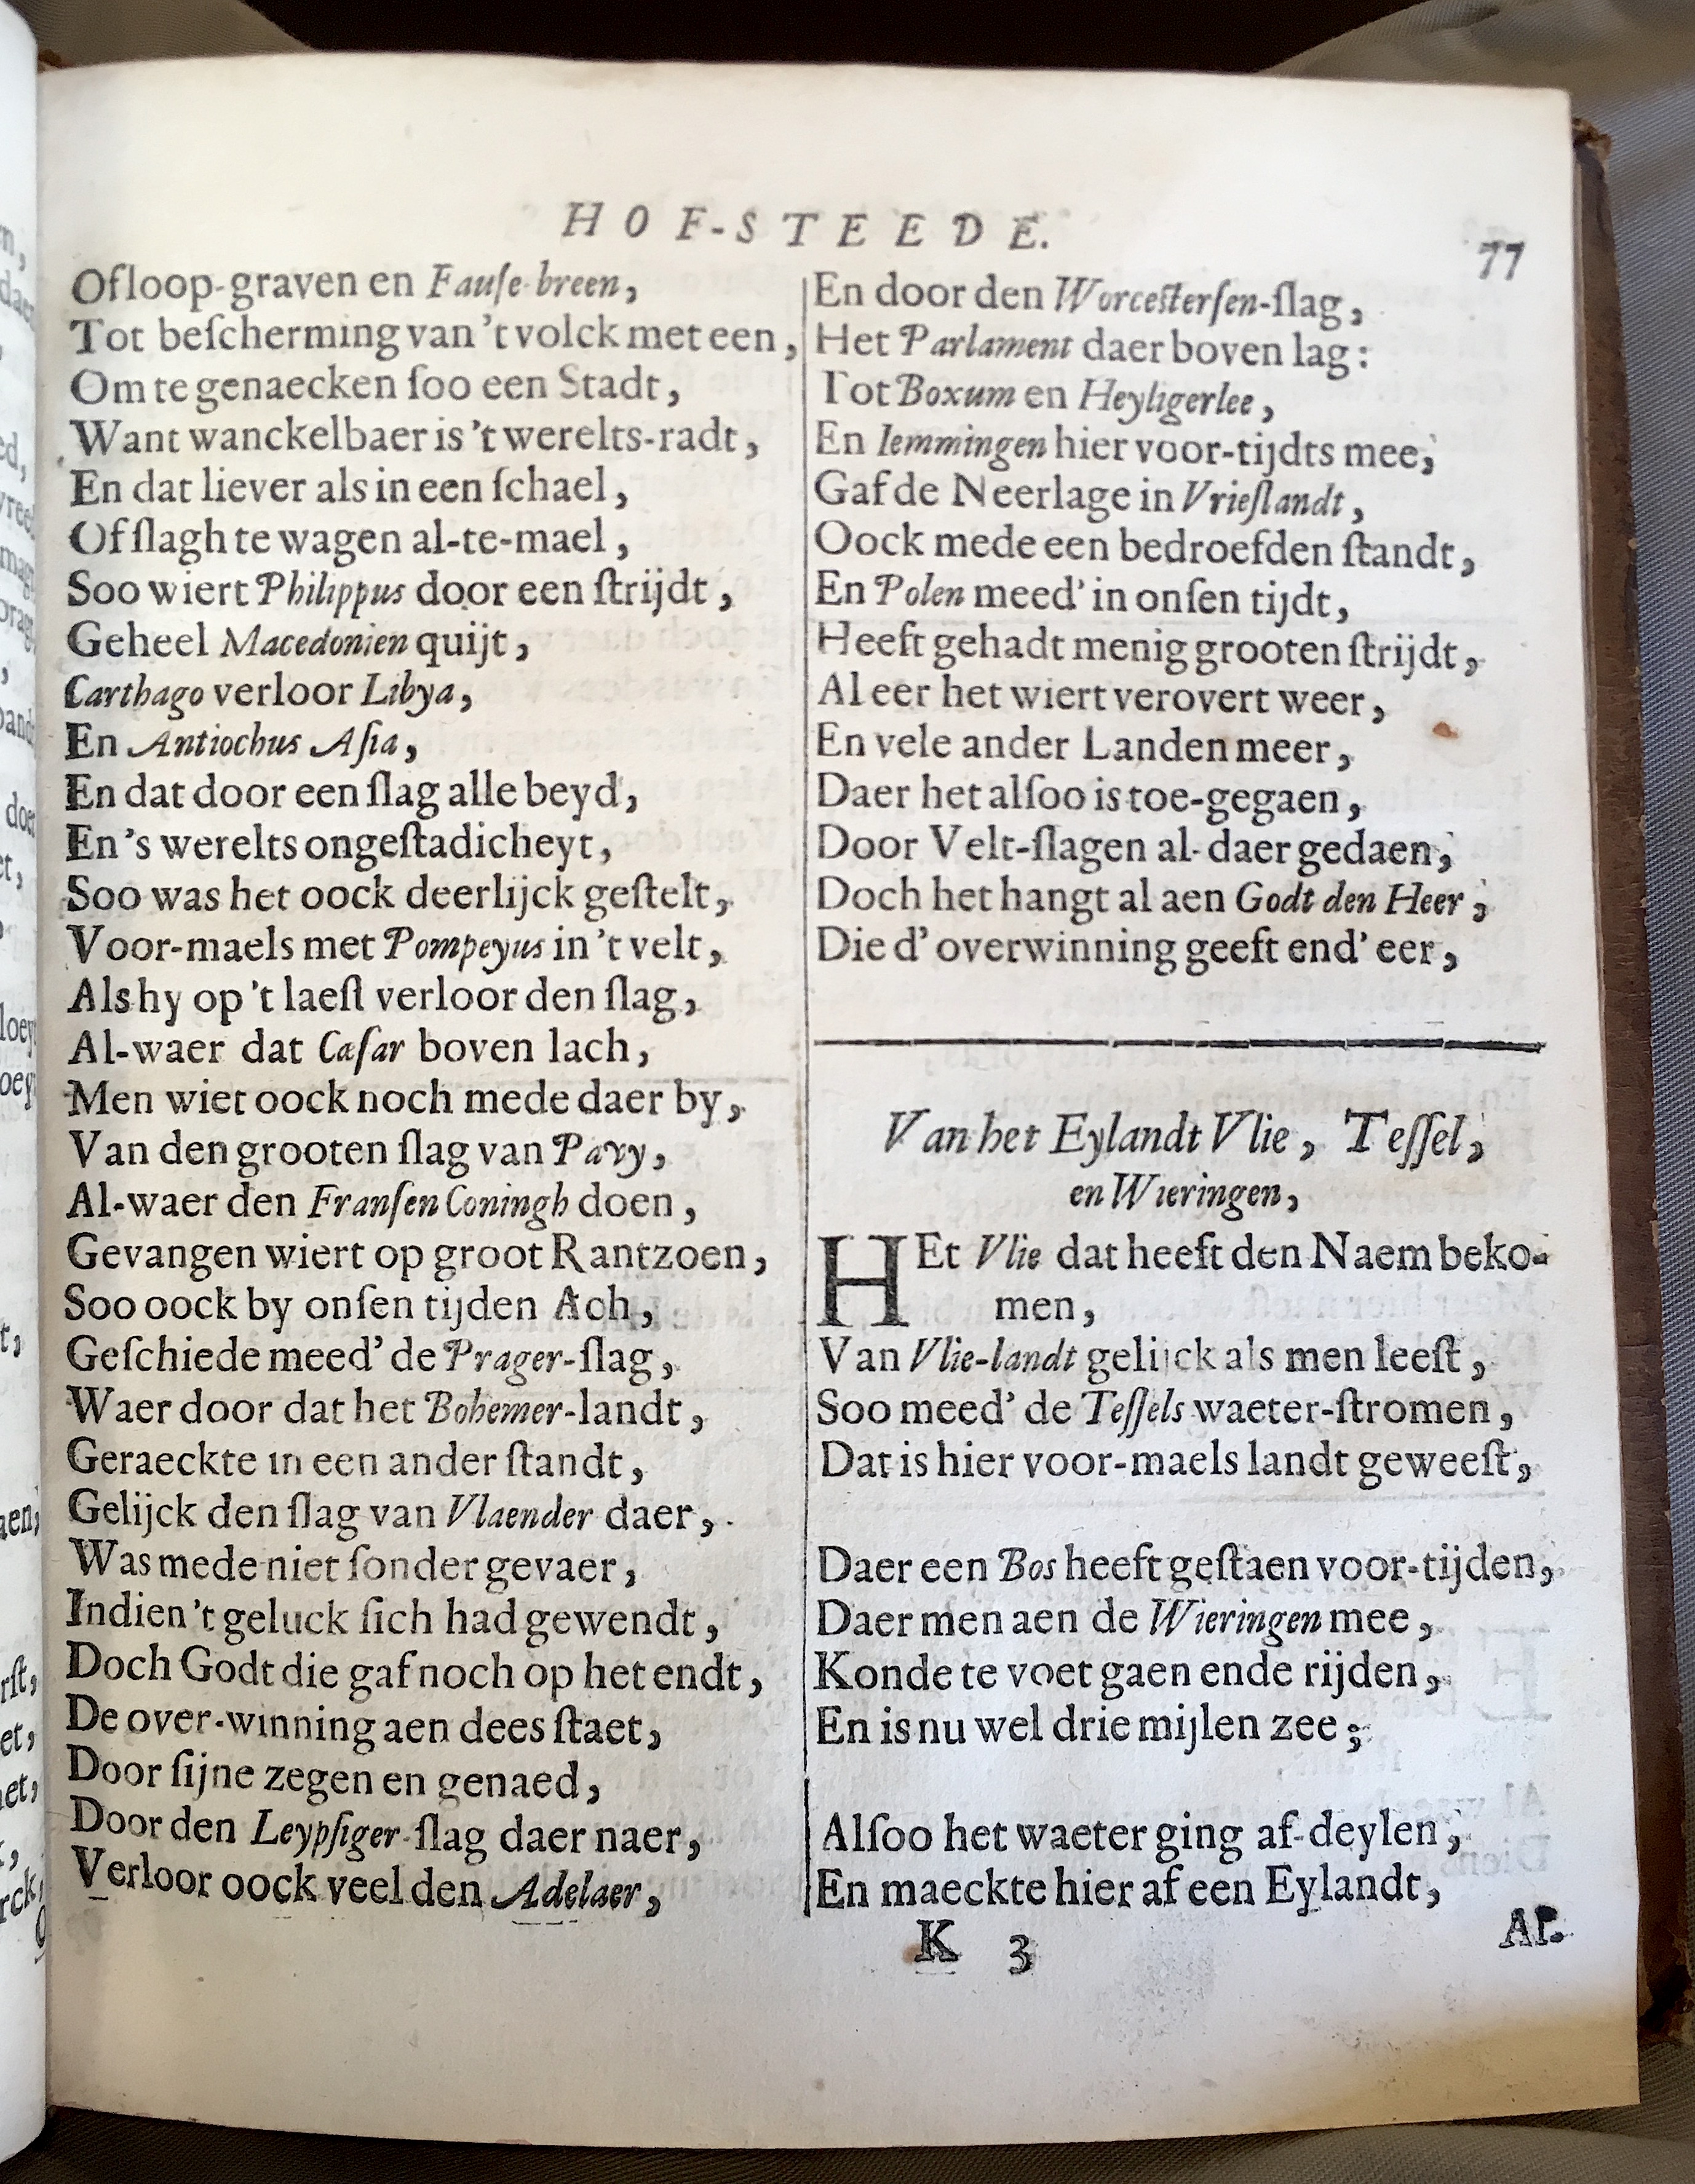 HOF-STEEDE.
77
Of loop-graven en Fauſe-breen,
Tot beſcherming van 't volck met een,
Om te genaecken ſoo een Stadt,
Want wanckelbaer is 't werelts-radt,
En dat liever als in een ſchael,
Of ſlagh te wagen al-te-mael,
Soo wiert Philippus door een ſtrijdt,
Geheel Macedonien quijt,
Carthago verloor Libya,
En Antiochus Aſia,
En dat door een ſlag alle beyd,
En 's werelts ongeſtadicheyt,
Soo was het oock deerlijck geſtelt,
Voor-maels met Pompeyus in 't velt,
Als hy op 't laeſt verloor den ſlag,
Al-waer dat Cæſar boven lach,
Men wiet oock noch mede daer by,
Van den grooten ſlag van Pavy,
Al-waer den Franſen Coningh doen,
Gevangen wiert op groot Rantzoen,
Soo oock by onſen tijden Ach,
Geſchiede meed' de Prager-ſlag,
Waer door dat het Bohemer-landt,
Geraeckte in een ander ſtandt,
Gelijck den ſlag van Vlaender daer,
Was mede niet ſonder gevaer,
Indien 't geluck ſich had gewendt,
Doch Godt die gaf noch op het endt,
De over-winning aen dees ſtaet,
Door ſijne zegen en genaed,
Door den Leypſiger-ſlag daer naer,
Verloor oock veel den Adelaer,
En door den Worceſterſen-ſlag,
Het Parlament daer boven lag:
Tot Boxum en Heyligerlee,
En Iemmingen hier voor-tijdts mee,
Gaf de Neerlage in Vrieſlandt,
Oock mede een bedroefden ſtandt,
En Polen meed' in onſen tijdt,
Heeft gehadt menig grooten ſtrijdt,
Al eer het wiert verovert weer,
En vele ander Landen meer,
Daer het alſoo is toe-gegaen,
Door Velt-ſlagen al-daer gedaen,
Doch het hangt al aen Godt den Heer,
Die d' overwinning geeft end' eer,
Van het Eylandt Vlie, Teſſel,
en Wieringen,
HEt Vlie dat heeft den Naem beko-
men,
Van Vlie-landt gelijck als men leeſt,
Soo meed' de Teſſels waeter-ſtromen,
Dat is hier voor-maels landt geweeſt,
Daer een Bos heeft geſtaen voor-tijden,
Daer men aen de Wieringen mee,
Konde te voet gaen ende rijden,
En is nu wel drie mijlen zee;
Alſoo het waeter ging af-deylen,
En maeckte hier af een Eylandt,
K 3